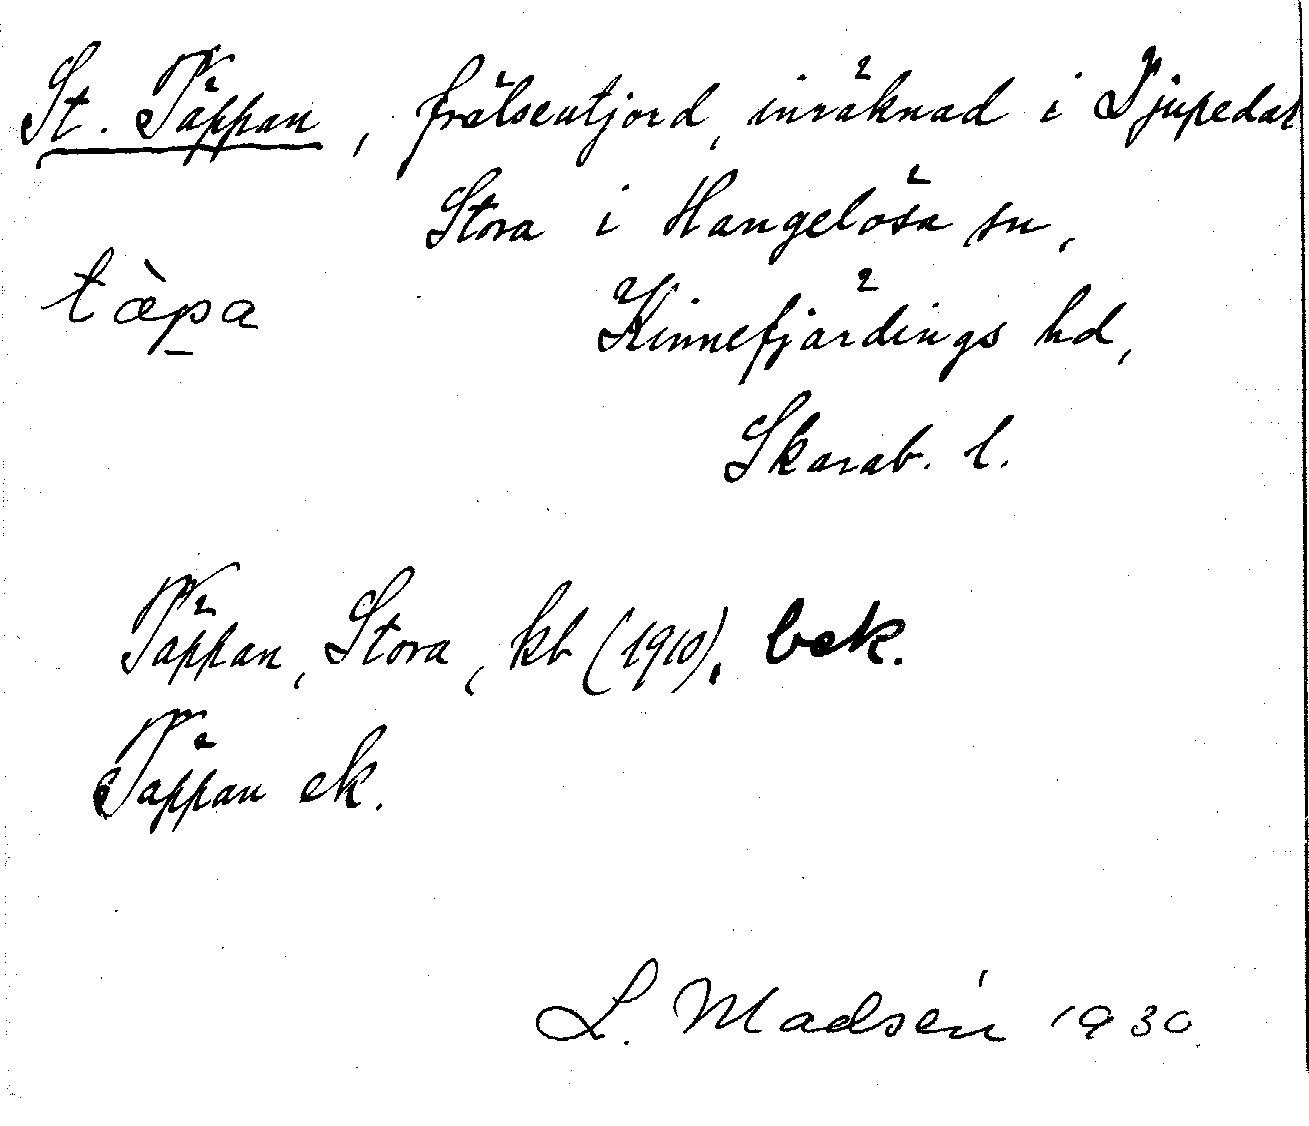 St. Täppan, frälseutjord, inräknad i Djupedal
Stora i Hangelösa sn,
tæ̀p̠a
Kinnefjärdings hd,
Skarab. l.
Täppan, Stora, kb (1910), bek.
Täppan ek.
L. Madsén 1930.